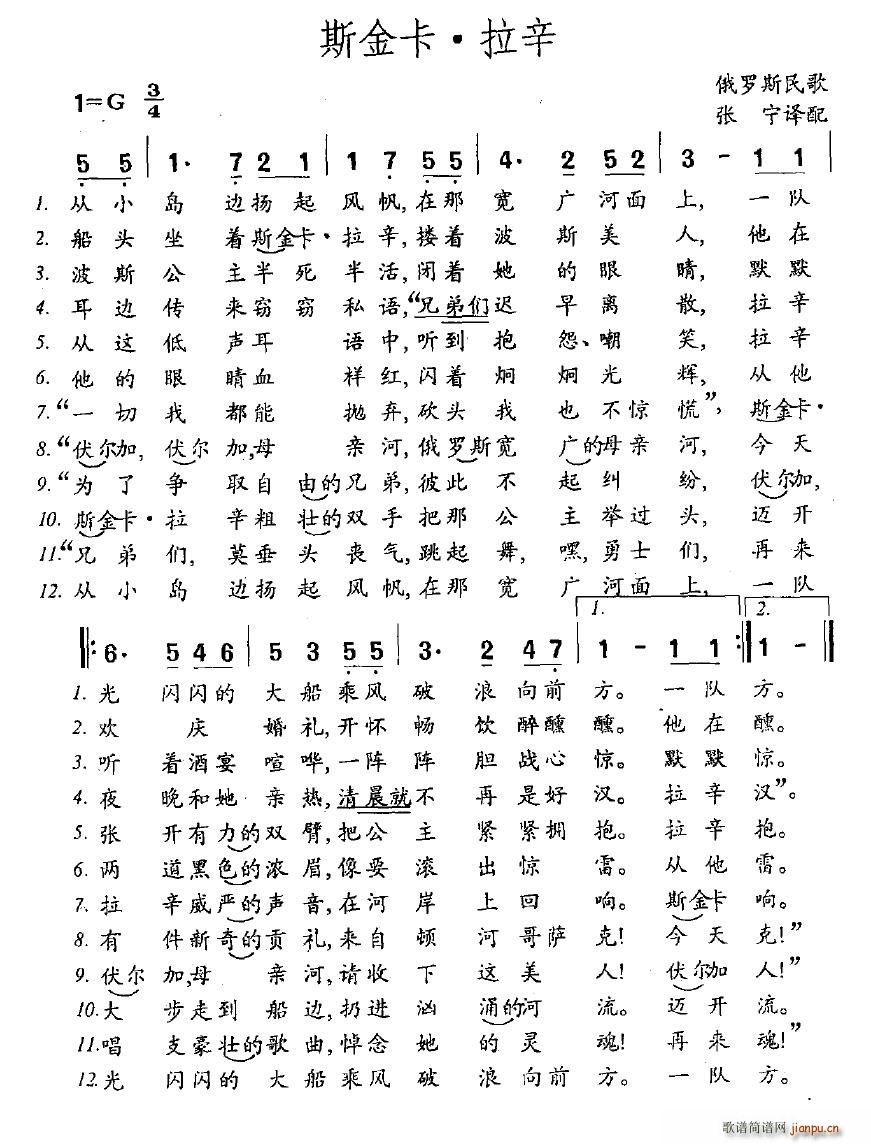 斯金卡·拉辛
1=G 3/4
俄罗斯民歌
张 宁译配
5 5 | 1· 7 2 1 | 1 7 5 5 | 4· 2 5 2 | 3 - 1 1 |
1. 从小岛边扬起风帆,在那宽广河面上,一队
2. 船头坐着斯金卡·拉辛,搂着波斯美人,他在
3. 波斯公主半死半活,闭着她的眼睛,默默
4. 耳边传来窃窃私语,“兄弟们迟早离散,拉辛
5. 从这低声耳语中,听到抱怨、嘲笑,拉辛
6. 他的眼睛血样红,闪着炯炯光辉,从他
7.“一切我都能抛弃,砍头我也不惊慌”,斯金卡·
8.“伏尔加,伏尔加,母亲河,俄罗斯宽广的母亲河,今天
9.“为了争取自由的兄弟,彼此不起纠纷,伏尔加,
10. 斯金卡·拉辛粗壮的双手把那公主举过头,迈开
11.“兄弟们,莫垂头丧气,跳起舞,嘿,勇士们,再来
12. 从小岛边扬起风帆,在那宽广河面上,一队
1. 2.
‖: 6· 5 4 6 | 5 3 5 5 | 3· 2 4 7 | 1 - 1 1 :‖ 1 - ‖
1. 光闪闪的大船乘风破浪向前方。一队方。
2. 欢庆婚礼,开怀畅饮醉醺醺。他在醺。
3. 听着酒宴喧哗,一阵阵胆战心惊。默默惊。
4. 夜晚和她亲热,清晨就不再是好汉。拉辛汉”。
5. 张开有力的双臂,把公主紧紧拥抱。拉辛抱。
6. 两道黑色的浓眉,像要滚出惊雷。从他雷。
7. 拉辛威严的声音,在河岸上回响。斯金卡响。
8. 有件新奇的贡礼,来自顿河哥萨克!今天克!”
9. 伏尔加,母亲河,请收下这美人!伏尔加人!”
10. 大步走到船边,扔进汹涌的河流。迈开流。
11. 唱支豪壮的歌曲,悼念她的灵魂!再来魂!”
12. 光闪闪的大船乘风破浪向前方。一队方。
歌谱简谱网 jianpu.cn